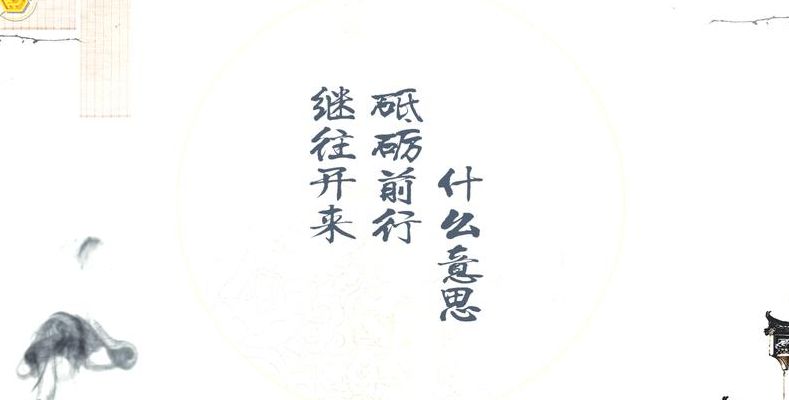 继往开来
砥砺前行
什么意思